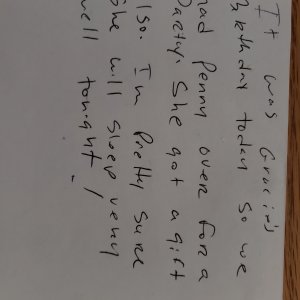 It was Gracie's
Birthday today so we
had Penny over for a
Party. She got a gift
also. I'm Pretty sure
she will sleep very
well tonight.